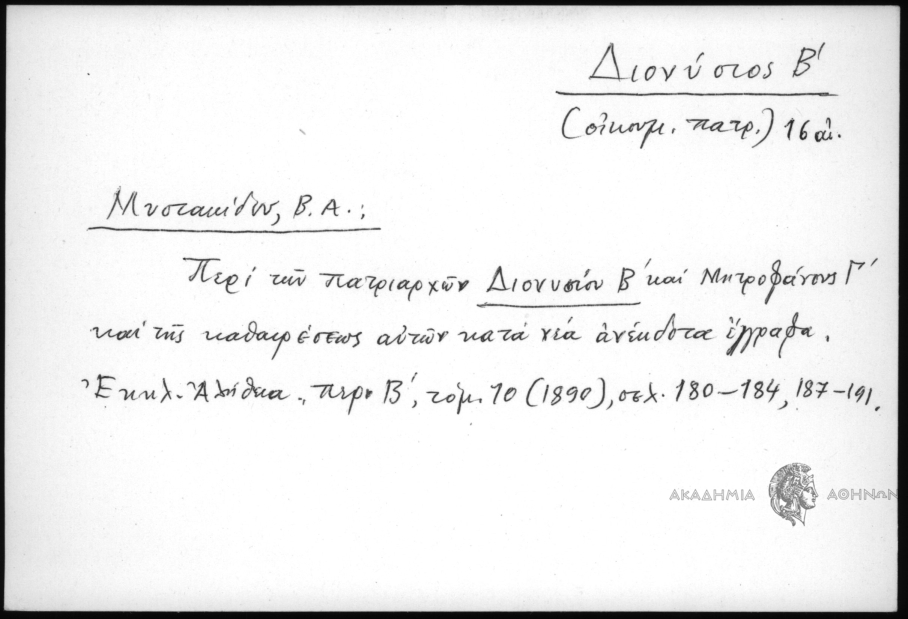 Διονύσιος Β'
(οἰκουμ. πατρ.) 16 αἰ.
Μυστακίδου, Β. Α.:
Περί τῶν πατριαρχῶν Διονυσίου Β' καί Μητροφάνους Γ'
καί τῆς καθαιρέσεως αὐτῶν κατά νέα ἀνέκδοτα ἔγγραφα.
Ἐκκλ. Ἀλήθεια, περ. Β', τόμ. 10 (1890), σελ. 180–184, 187–191.
ΑΚΑΔΗΜΙΑ ΑΘΗΝΩΝ